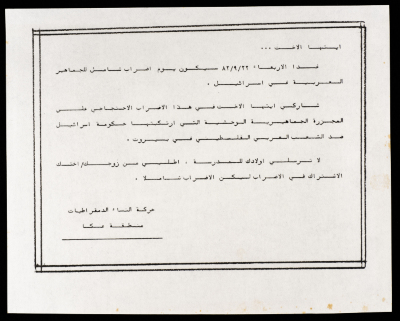 ايتها الاخت ...
غدا الاربعاء ٨٢/٩/٢٢ سيكون يوم اضراب شامل للجماهير
العربية في اسرائيل .
شاركي ايتها الاخت في هذا الاضراب الاحتجاجي على
المجزرة الجماهيرية الوحشية التي ارتكبتها حكومة اسرائيل
ضد الشعب العربي الفلسطيني في بيروت .
لا ترسلي اولادك للمدرسة ، اطلبي من زوجك
الاشتراك في الاضراب ليكن الاضراب شاملا .
حركة النساء الدمقراطيات
منطقة عكا